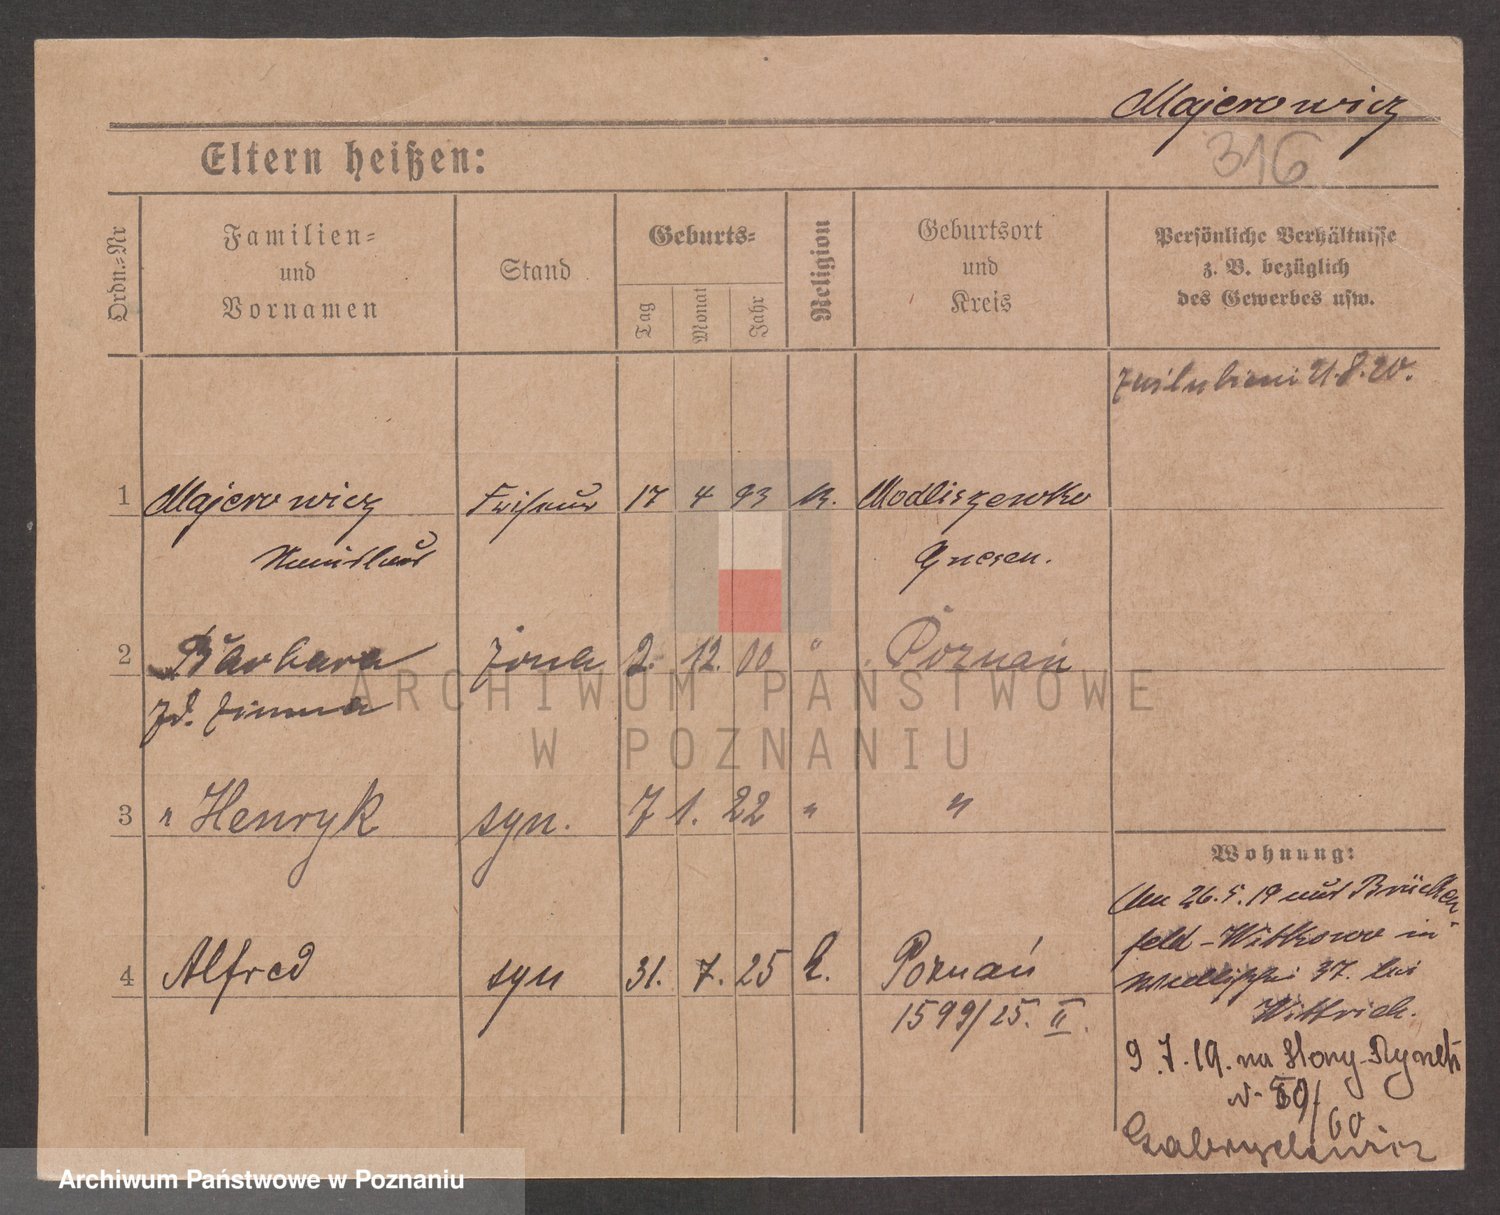 Majerowicz
316
Eltern heißen:
Ordn.-Nr
Familien-
und
Vornamen
Stand
Geburts-
Tag
Monat
Jahr
Religion
Geburtsort
und
Kreis
Persönliche Verhältnisse
z. B. bezüglich
des Gewerbes usw.
21.8.20.
1 Majerowicz Friseur 17 4 93 k. Modliszewko
Gnesen.
2 Barbara żona 2. 12. 00 " Poznań
zd. Zimna
3 " Henryk syn. 7 1. 22 " "
4 Alfred syn 31. 7. 25 k. Poznań
1599/25. II.
Wohnung:
Am 26.5.19 aus Brücken-
feld-Witkowo in
37. bei
Wittrich.
9.7.19. na Stary-Rynek
N-
60
Gabryelewicz
ARCHIWUM PAŃSTWOWE
W POZNANIU
Archiwum Państwowe w Poznaniu